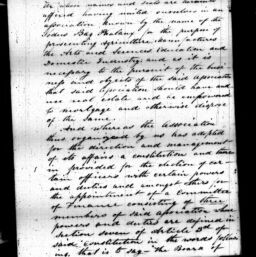 We whose names and seals are hereunto
affixed having united ourselves in an
association known by the name of the
Sodus Bay Phalanx for the purpose of
prosecuting Agriculture Manufactures
the Arts and Sciences Education and
Domestic Industry and as it is
necessary to the pursuit of the busi
ness and objects of the said association
that said Association should have and
use real estate and be empowered
to mortgage and otherwise dispose
of the same.
And whereas the Association
thus organized by us has adopted
for the direction and management
of its affairs a constitution and there
in provided for the election of cer
tain officers with certain powers
and duties and amongst others in
the appointment of a Committee
of Finance consisting of three
members of said association whose
powers and duties are defined in
section seven of Article 2d of
said constitution in the words follow
ing, that is to say "The Board of